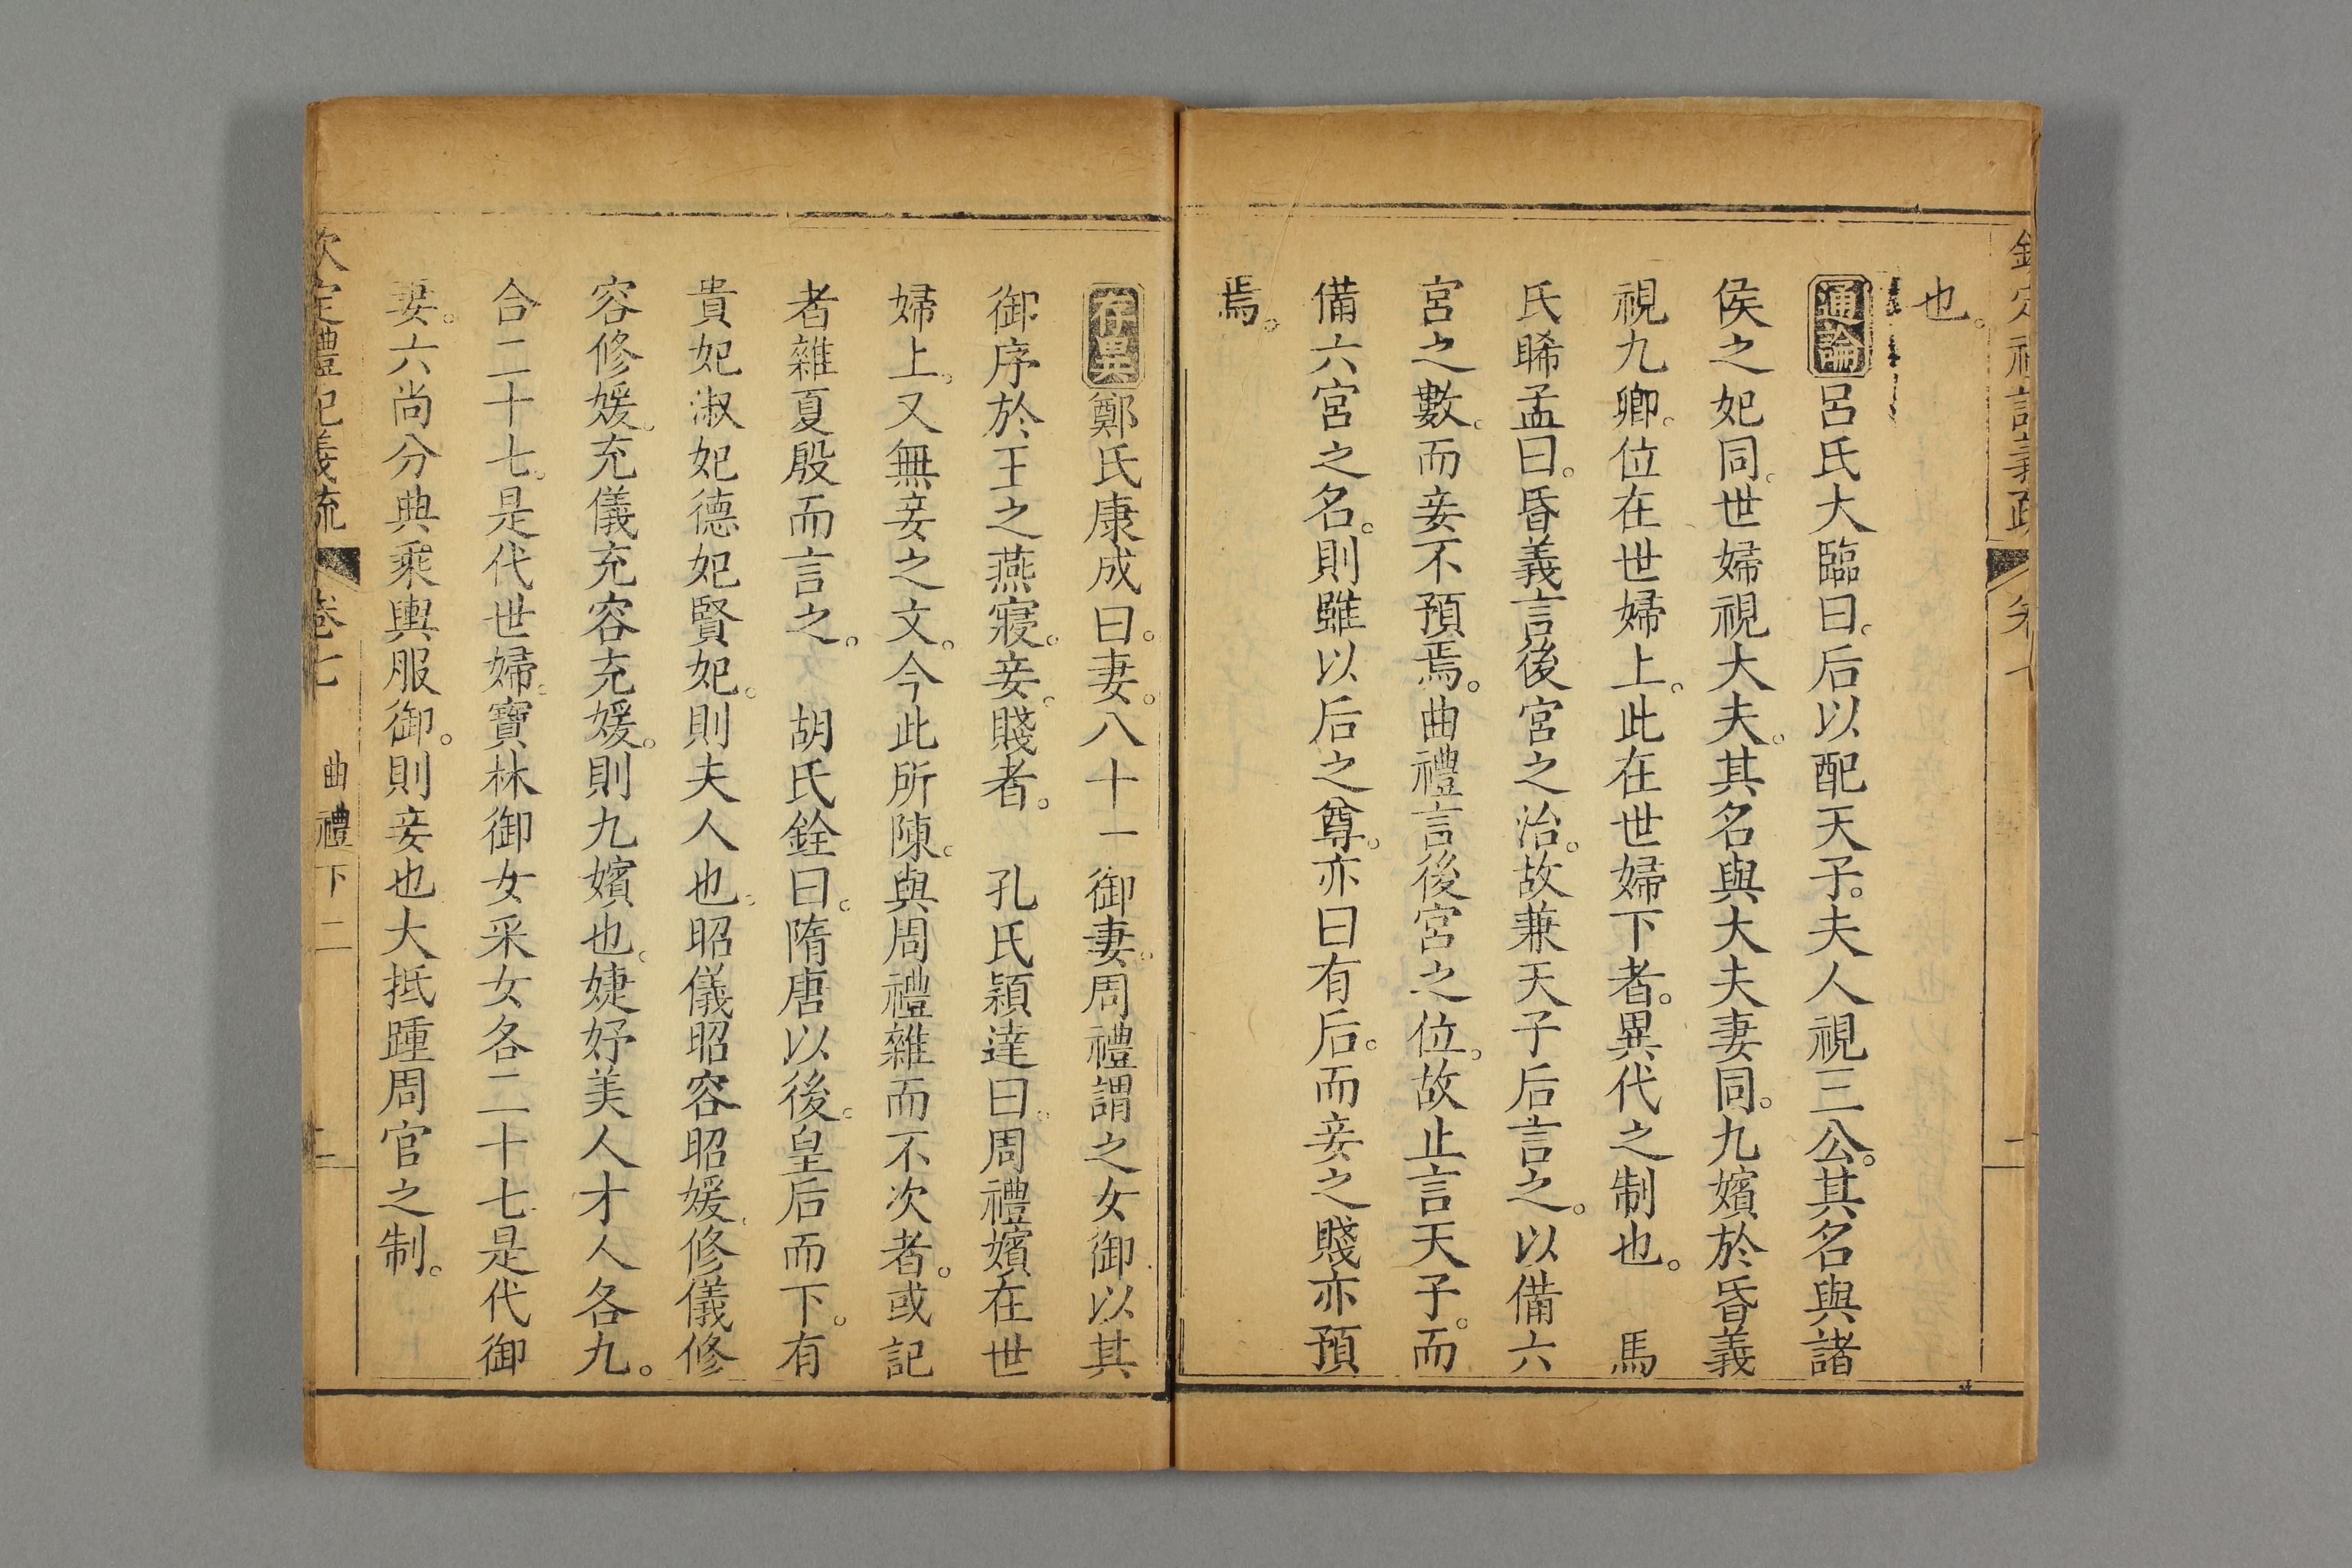 也。
通論呂氏大臨曰。后以配天子。夫人視三公。其名與諸
侯之妃同。世婦視大夫。其名與大夫妻同。九嬪於昏義
視九卿。位在世婦上。此在世婦下者。異代之制也。　馬
氏晞孟曰。昏義言後宮之治。故兼天子后言之。以備六
宮之數。而妾不預焉。曲禮言後宮之位。故止言天子。而
備六宮之名。則雖以后之尊。亦曰有后。而妾之賤亦預
焉。
存異鄭氏康成曰。妻。八十一御妻。周禮謂之女御以其
御序於王之燕寢。妾。賤者。　孔氏穎達曰。周禮嬪在世
婦上。又無妾之文。今此所陳。與周禮雜而不次者。或記
者雜夏殷而言之。　胡氏銓曰。隋唐以後。皇后而下。有
貴妃淑妃德妃賢妃。則夫人也。昭儀昭容昭媛。修儀修
容修媛。充儀充容充媛。則九嬪也。婕妤美人才人各九。
合二十七。是代世婦。寶林御女采女各二十七是代御
妻。六尚分典乘輿服御。則妾也大抵踵周官之制。
欽定禮記義疏　卷七　曲禮下二